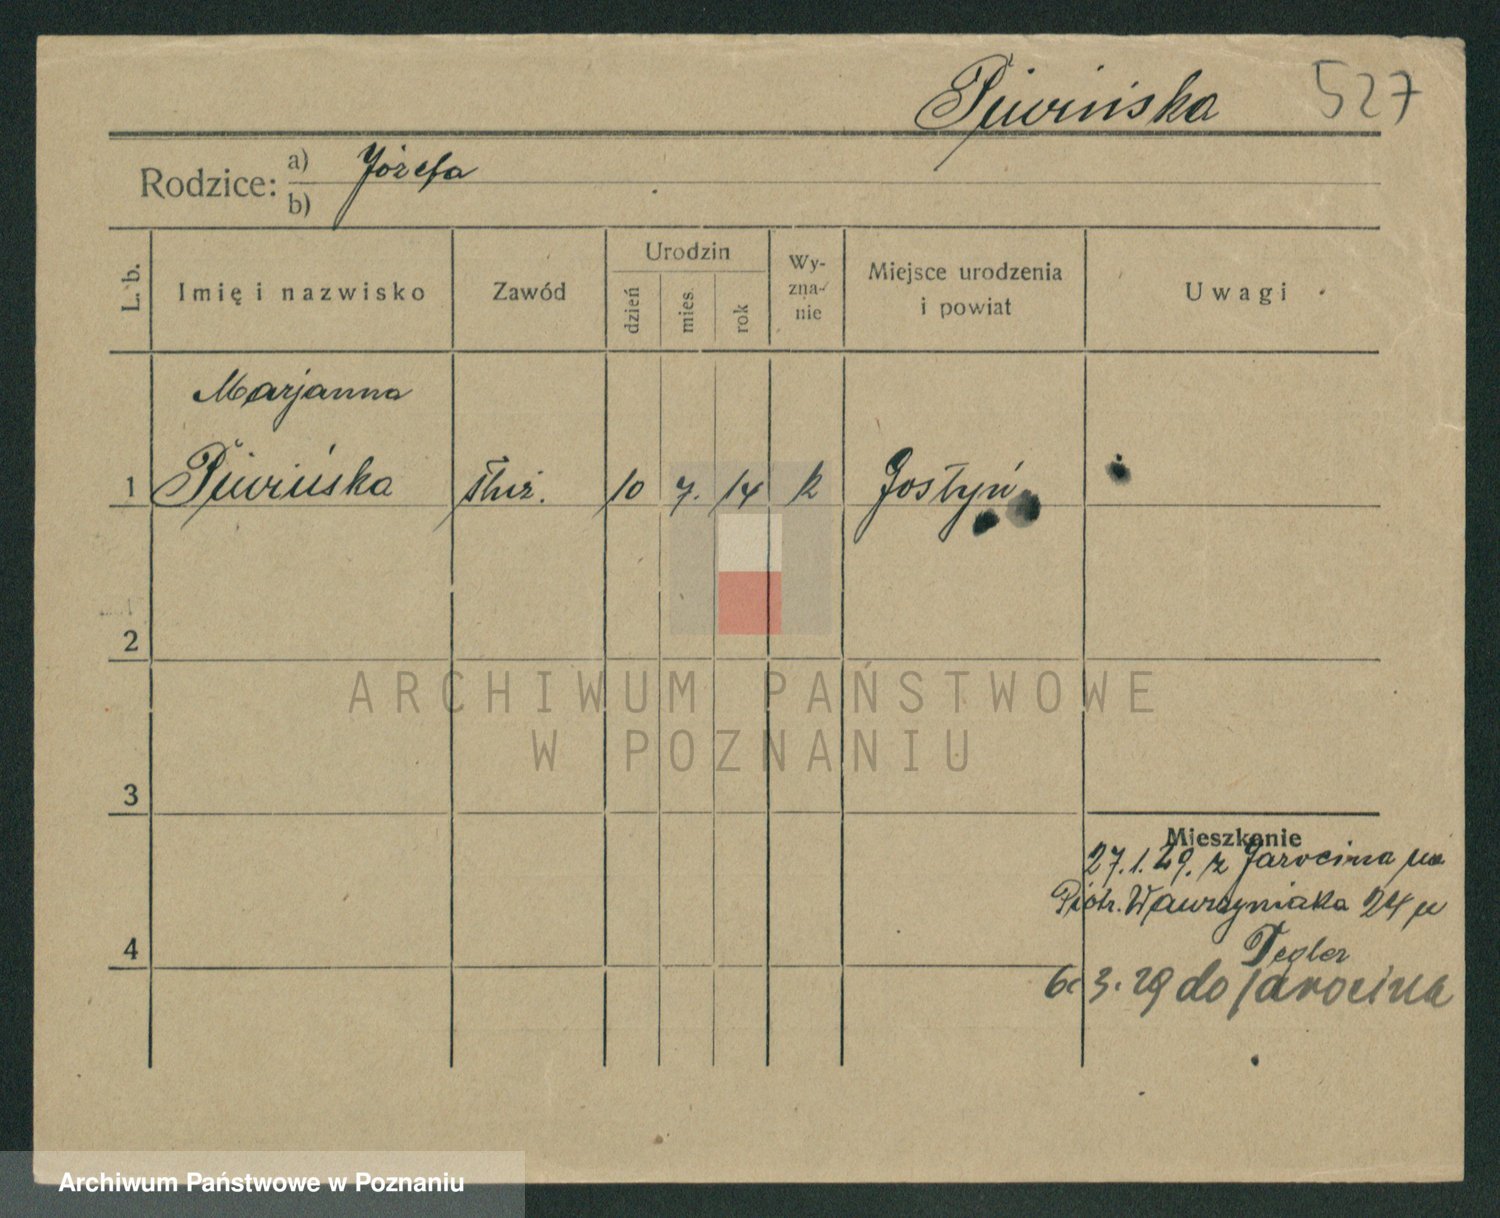 Piwińska 527
Rodzice: a) Józefa
b)
L. b. Imię i nazwisko Zawód Urodzin dzień mies. rok Wy-zna-nie Miejsce urodzenia i powiat Uwagi
Marjanna
1 Piwińska służ. 10 7. 14 k Gostyń
2
ARCHIWUM PAŃSTWOWE
W POZNANIU
3
Mieszkanie
27.1.29. z Jarocina na
Piotr. Wawrzyniaka 24 u
Tegler
4
6. 3. 29 do Jarocina
Archiwum Państwowe w Poznaniu